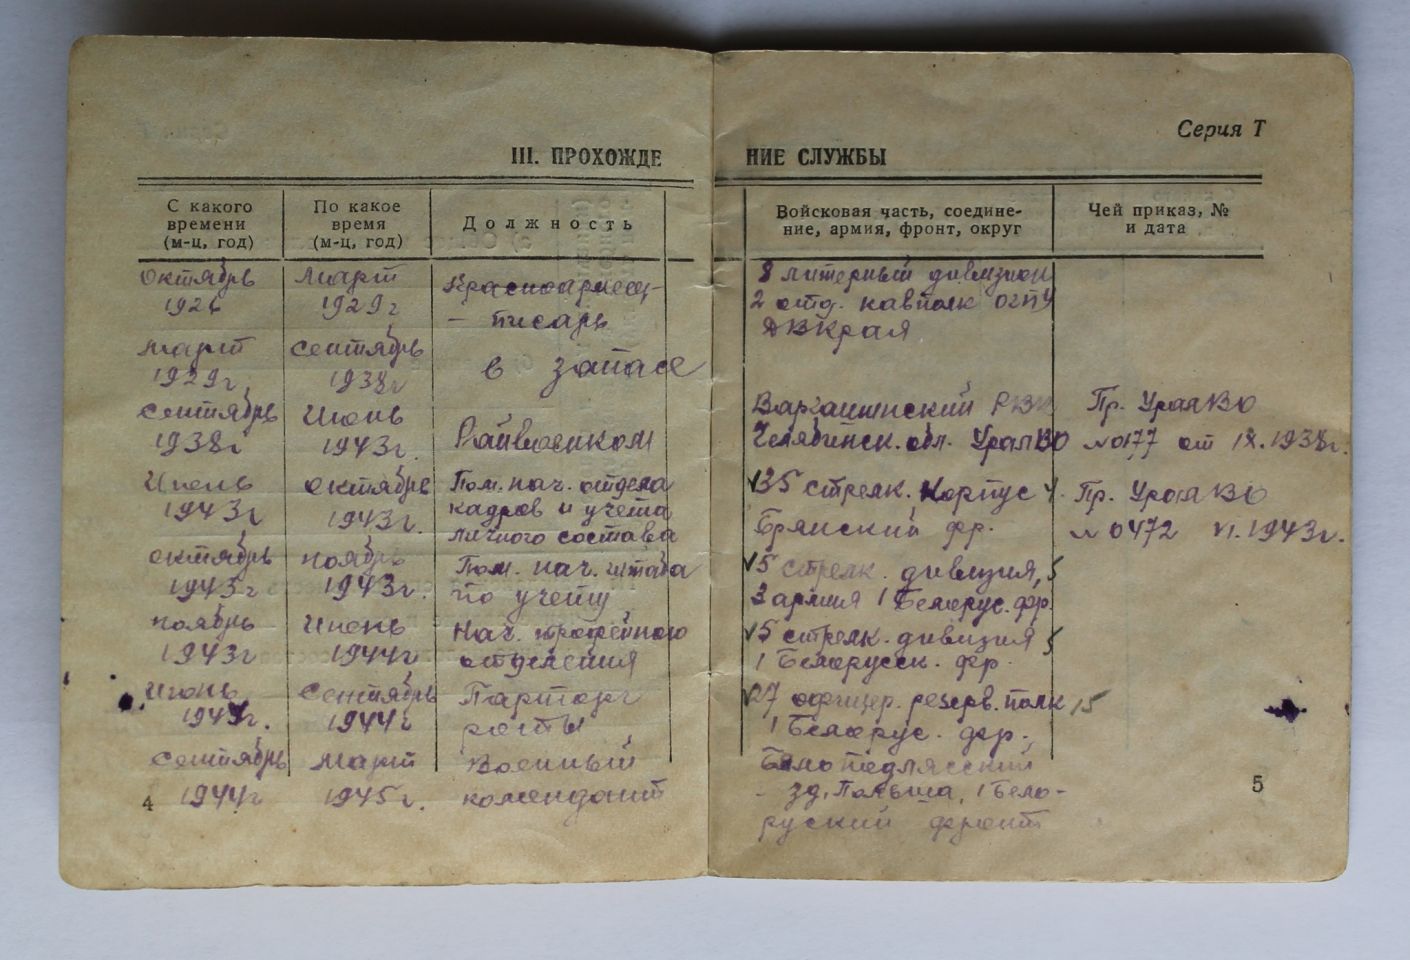 Серия Т
III. ПРОХОЖДЕ НИЕ СЛУЖБЫ
С какого
времени
(м-ц, год)
По какое
время
(м-ц, год)
Должность
Войсковая часть, соедине-
ние, армия, фронт, округ
Чей приказ, №
и дата
октябрь
1926
март
1929г
Красноармеец-
- писарь
8 литерный дивизион
2 отд. кавполк ОГПУ
ДВКрая
март
1929г
сентябрь
1938г
в запасе
сентябрь
1938г
июнь
1943г.
Райвоенком
Варгашинский РВК
Челябинск. обл. УралВО
Пр. УралВО
№ 0177 от IX.1938г.
Июнь
1943г
октябрь
1943г.
Пом. нач. отдела
кадров и учета
личного состава
35 стрелк. корпус
Брянский фр.
Пр. УралВО
№ 0472 VI.1943г.
октябрь
1943г
ноябрь
1943г.
Пом. нач. штаба
по учету
5 стрелк. дивизия,
3 армия 1 Белорус. фр.
ноябрь
1943г
Июнь
1944г
Нач. трофейного
отделения
5 стрелк. дивизия
1 Белорусск. фр.
Июнь
1944г.
сентябрь
1944г
Парторг
роты
27 офицер. резерв. полк
1 Белорус. фр.
сентябрь
1944г
март
1945г.
Военный
комендант
- зд. Польша, 1 Бело-
руский фронт
4
5